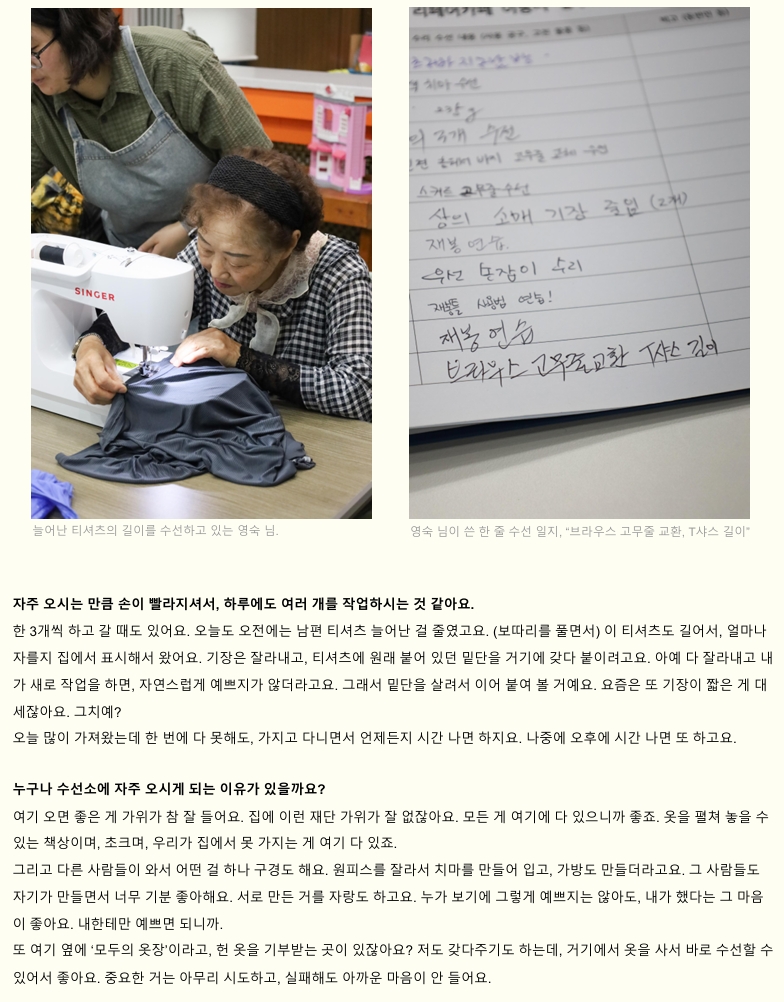 SINGER
수리 수선 내용
스커트 고무줄 수선
상의 소매 기장 줄임 (2개)
재봉 연습.
우산 손잡이 수리
재봉틀 사용법 연습!
재봉 연습
브라우스 고무줄교환 T샤스 길이
늘어난 티셔츠의 길이를 수선하고 있는 영숙 님.
영숙 님이 쓴 한 줄 수선 일지, “브라우스 고무줄 교환, T샤스 길이”
자주 오시는 만큼 손이 빨라지셔서, 하루에도 여러 개를 작업하시는 것 같아요.
한 3개씩 하고 갈 때도 있어요. 오늘도 오전에는 남편 티셔츠 늘어난 걸 줄였고요. (보따리를 풀면서) 이 티셔츠도 길어서, 얼마나
자를지 집에서 표시해서 왔어요. 기장은 잘라내고, 티셔츠에 원래 붙어 있던 밑단을 거기에 갖다 붙이려고요. 아예 다 잘라내고 내
가 새로 작업을 하면, 자연스럽게 예쁘지가 않더라고요. 그래서 밑단을 살려서 이어 붙여 볼 거예요. 요즘은 또 기장이 짧은 게 대
세잖아요. 그치예?
오늘 많이 가져왔는데 한 번에 다 못해도, 가지고 다니면서 언제든지 시간 나면 하지요. 나중에 오후에 시간 나면 또 하고요.
누구나 수선소에 자주 오시게 되는 이유가 있을까요?
여기 오면 좋은 게 가위가 참 잘 들어요. 집에 이런 재단 가위가 잘 없잖아요. 모든 게 여기에 다 있으니까 좋죠. 옷을 펼쳐 놓을 수
있는 책상이며, 초크며, 우리가 집에서 못 가지는 게 여기 다 있죠.
그리고 다른 사람들이 와서 어떤 걸 하나 구경도 해요. 원피스를 잘라서 치마를 만들어 입고, 가방도 만들더라고요. 그 사람들도
자기가 만들면서 너무 기분 좋아해요. 서로 만든 거를 자랑도 하고요. 누가 보기에 그렇게 예쁘지는 않아도, 내가 했다는 그 마음
이 좋아요. 내한테만 예쁘면 되니까.
또 여기 옆에 ‘모두의 옷장’이라고, 헌 옷을 기부받는 곳이 있잖아요? 저도 갖다주기도 하는데, 거기에서 옷을 사서 바로 수선할 수
있어서 좋아요. 중요한 거는 아무리 시도하고, 실패해도 아까운 마음이 안 들어요.